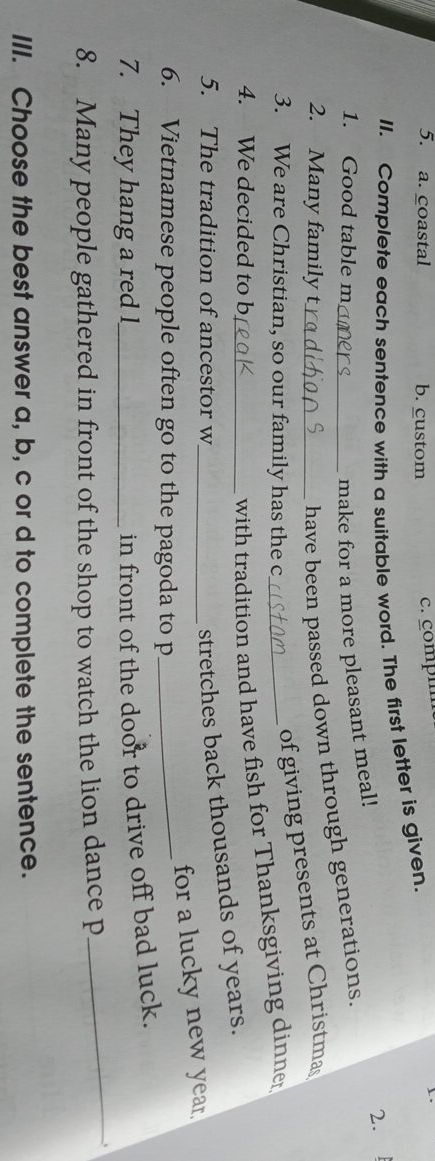 5. a. coastal b. custom
II. Complete each sentence with a suitable word. The first letter is given.
1. Good table manners make for a more pleasant meal!
2. Many family traditions have been passed down through generations.
3. We are Christian, so our family has the custom of giving presents at Christmas
4. We decided to break with tradition and have fish for Thanksgiving dinner.
5. The tradition of ancestor w__________ stretches back thousands of years.
6. Vietnamese people often go to the pagoda to p__________ for a lucky new year.
7. They hang a red l__________ in front of the door to drive off bad luck.
8. Many people gathered in front of the shop to watch the lion dance p__________.
III. Choose the best answer a, b, c or d to complete the sentence.
2.